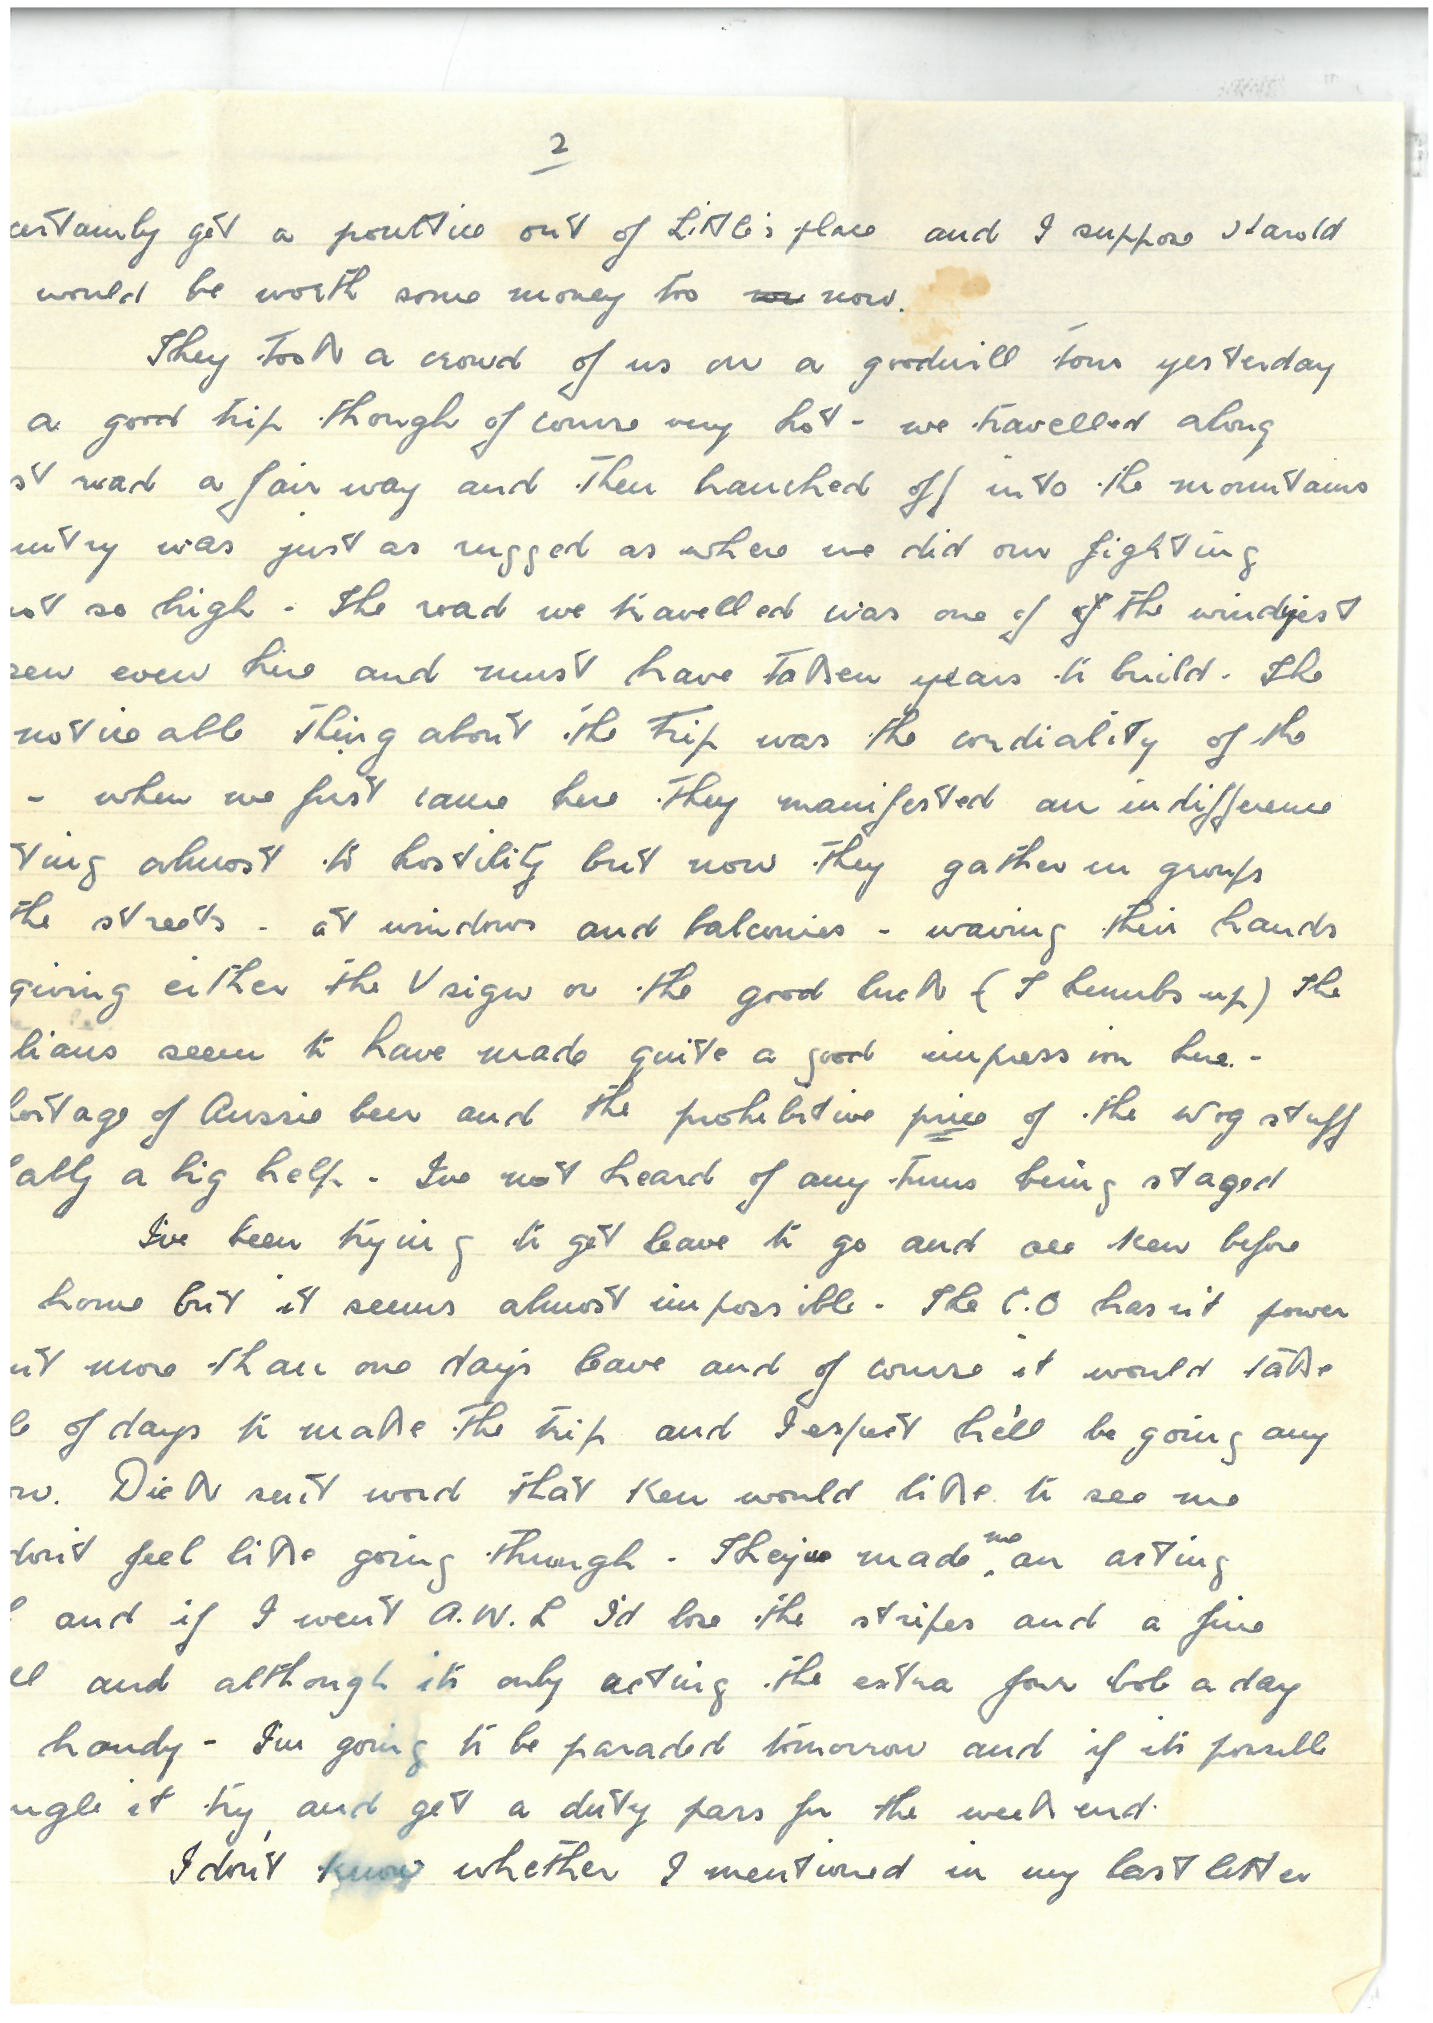 2
certainly get a poultice out of Little's place and I suppose Harold
would be worth some money too now.
They took a crowd of us on a goodwill tour yesterday
a good trip though of course very hot - we travelled along
st road a fair way and then branched off into the mountains
untry was just as rugged as where we did our fighting
not so high - The road we travelled was one of of the windyest
seen even here and must have taken years to build. The
noticeable thing about the trip was the cordiality of the
- when we first came here they manifested an indifference
ting almost to hostility but now they gather in groups
the streets - at windows and balconies - waving their hands
giving either the V sign or the good luck (Thumbs up) The
lians seem to have made quite a good impression here. -
hortage of Aussie beer and the prohibitive price of the Wog stuff
ably a big help. - I've not heard of any turns being staged
I've been trying to get leave to go and see Ken before
home but it seems almost impossible - The C.O hasn't power
nt more than one day's leave and of course it would take
le of days to make the trip and I expect he'll be going any
ow. Dick sent word that Ken would like to see me
don't feel like going through - They've made me an acting
l and if I went A.W.L I'd lose the stripes and a fine
ll and although it's only acting the extra four bob a day
handy - I'm going to be paraded tomorrow and if it's possible
ngle it try and get a duty pass for the week end.
I don't know whether I mentioned in my last letter